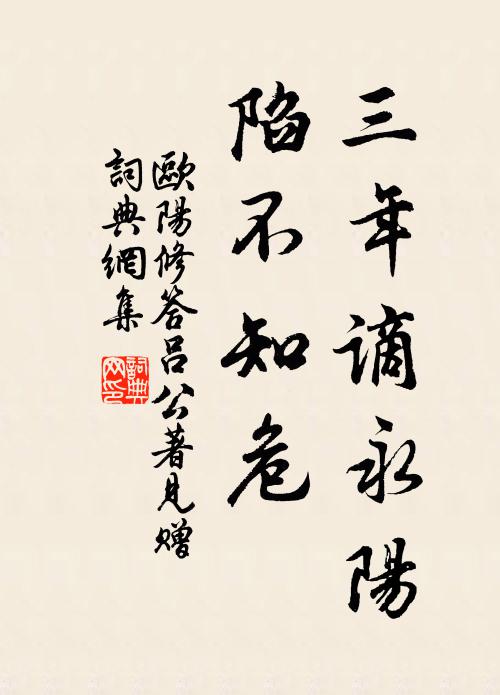 三年謫永陽
陷不知危
歐陽修答呂公著見贈
詞典網集
詞典网印